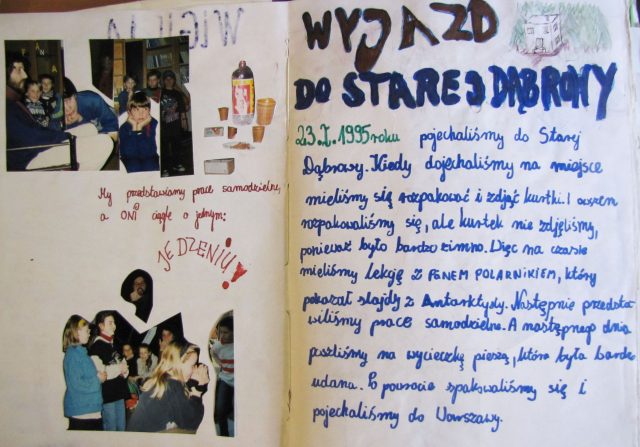 My przedstawiamy prace samodzielne,
a ONI ciągle o jednym:
JEDZENIU!
WYJAZD
DO STAREJ DĄBROWY
23.X.1995 roku pojechaliśmy do Starej
Dąbrowy. Kiedy dojechaliśmy na miejsce
mieliśmy się rozpakować i zdjąć kurtki. I owszem
rozpakowaliśmy się, ale kurtek nie zdjęliśmy,
ponieważ było bardzo zimno. Więc na czasie
mieliśmy Lekcję z FENEM POLARNIKIEM, który
pokazał slajdy z Antarktydy. Następnie przedsta
wiliśmy prace samodzielne. A następnego dnia
poszliśmy na wycieczkę pieszą, która była bardzo
udana. Po powrocie spakowaliśmy się i
pojechaliśmy do Warszawy.